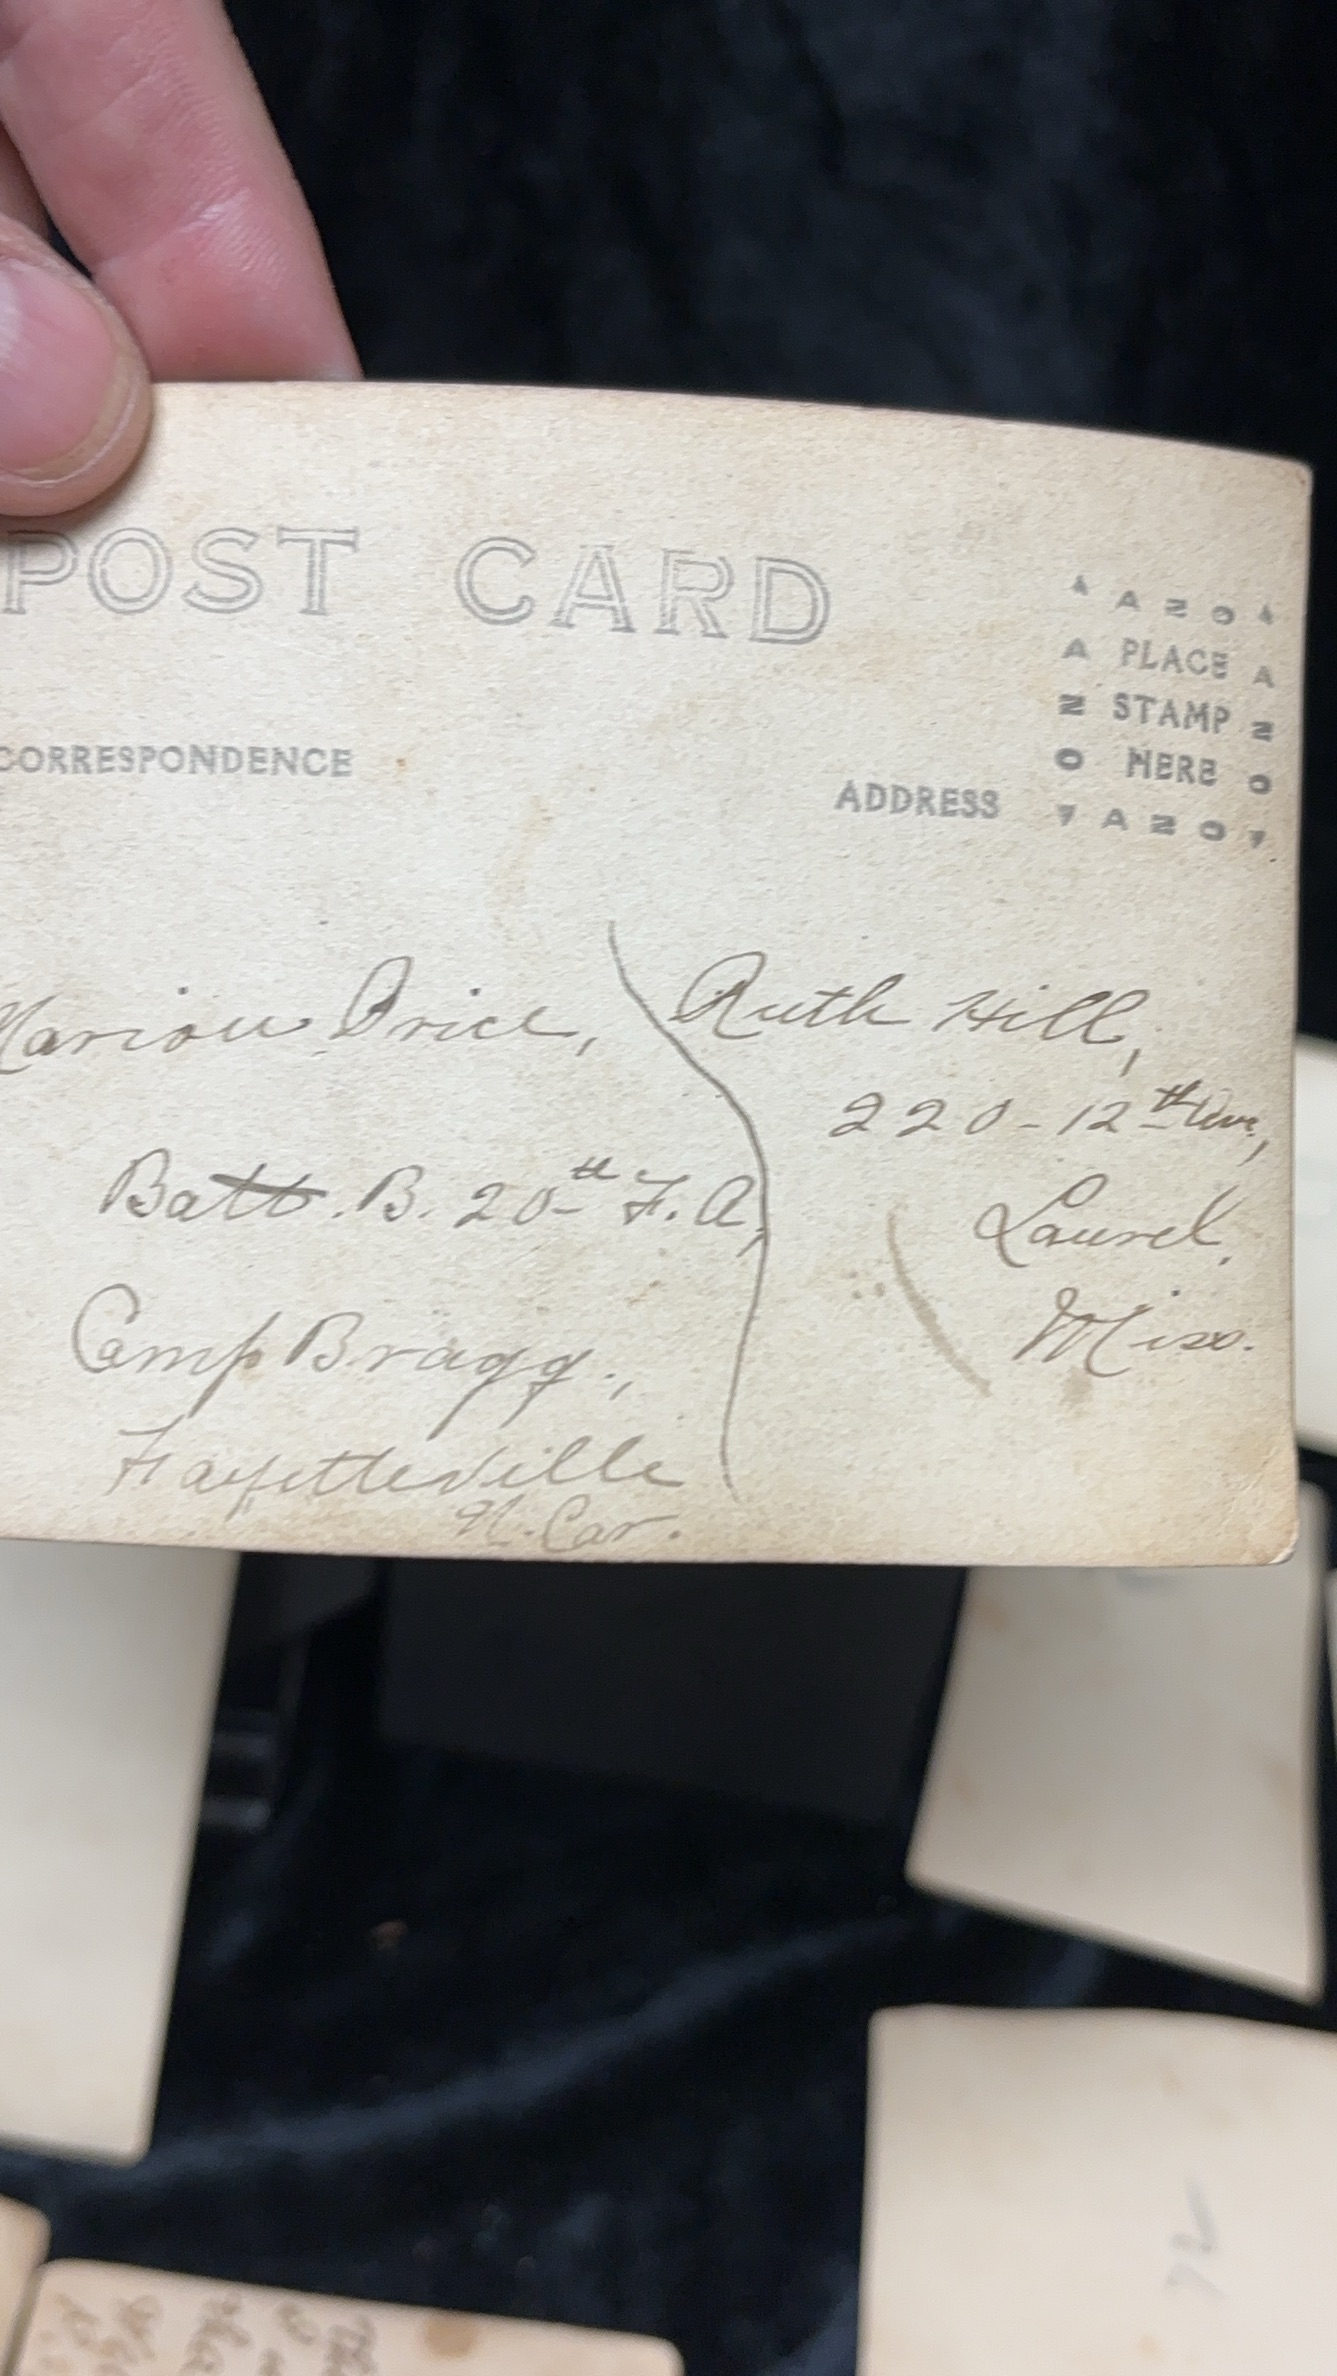 POST CARD
CORRESPONDENCE
ADDRESS
AZO
A PLACE A
Z STAMP Z
O HERE O
AZO
Marion Price,
Batt. B. 20th F. A,
Camp Bragg.,
Fayetteville
N. Car.
Ruth Hill,
220-12th Ave,
Laurel,
Miss.